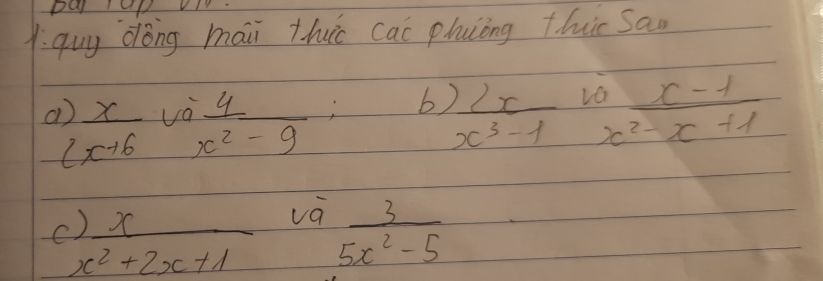 Bài tập VN:
1. quy đồng mẫu thức các phương thức sau
a) x/(2x+6) và 4/(x² - 9) ; b) 2x/(x³ - 1) và (x - 1)/(x² - x + 1)
c) x/(x² + 2x + 1) và 3/(5x² - 5)